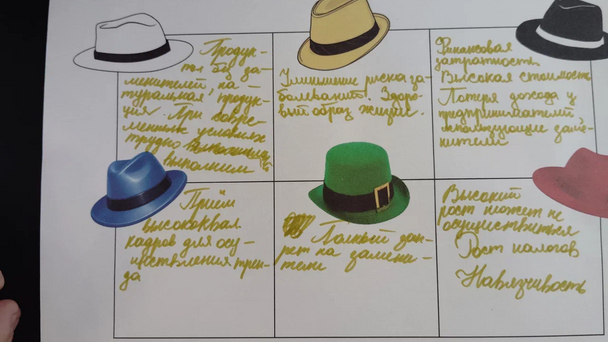 Продук-
ты без за-
менителей, на-
туральная, продук-
ция. При совре-
менных условиях
трудно
выполним
Уменьшение риска за-
болеваний. Здоро-
вый образ жизни.
Финансовая
затратность
Высокая стоимость
Потеря дохода у
предпринимателей
использующие заме-
нители
Приём
высококвал.
кадров для осу-
ществления трен-
да
Полный зап-
рет на замени-
тели
Высокий
рост может не
осуществиться
Рост налогов
Навязчивость